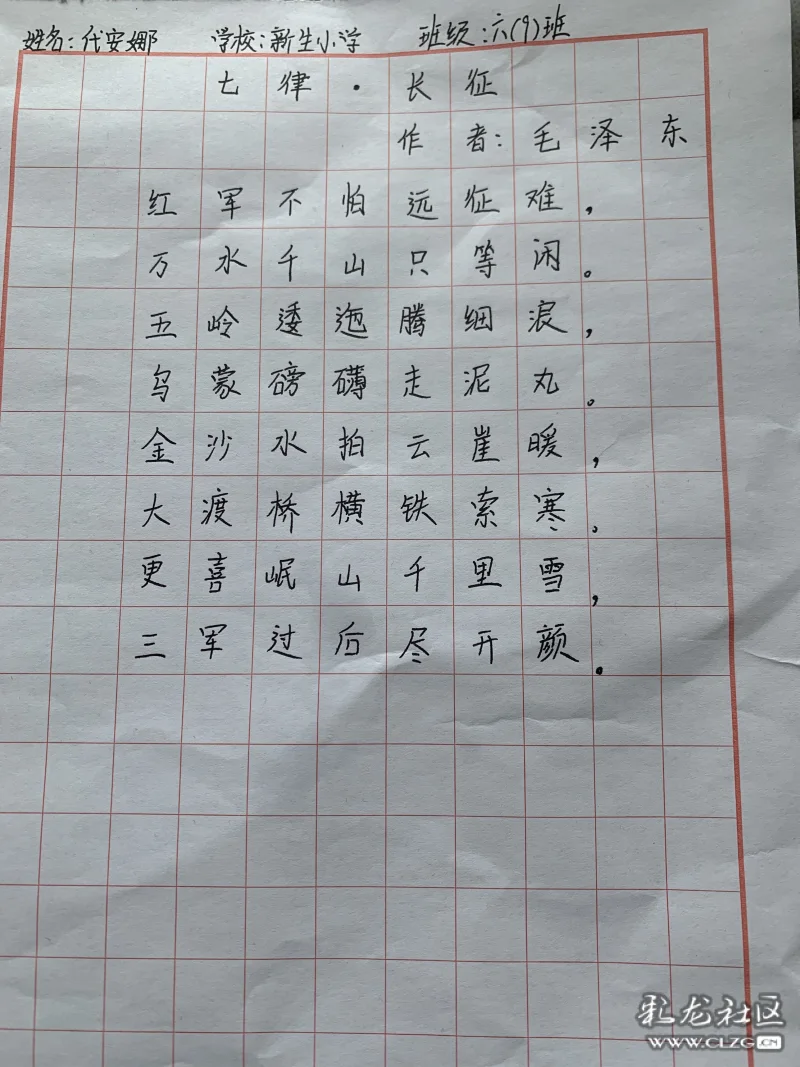 姓名:代安娜 学校:新生小学 班级:六(9)班
七律·长征
作者:毛泽东
红军不怕远征难,
万水千山只等闲。
五岭逶迤腾细浪,
乌蒙磅礴走泥丸。
金沙水拍云崖暖,
大渡桥横铁索寒。
更喜岷山千里雪,
三军过后尽开颜。
彩龙社区
WWW.CLZG.CN